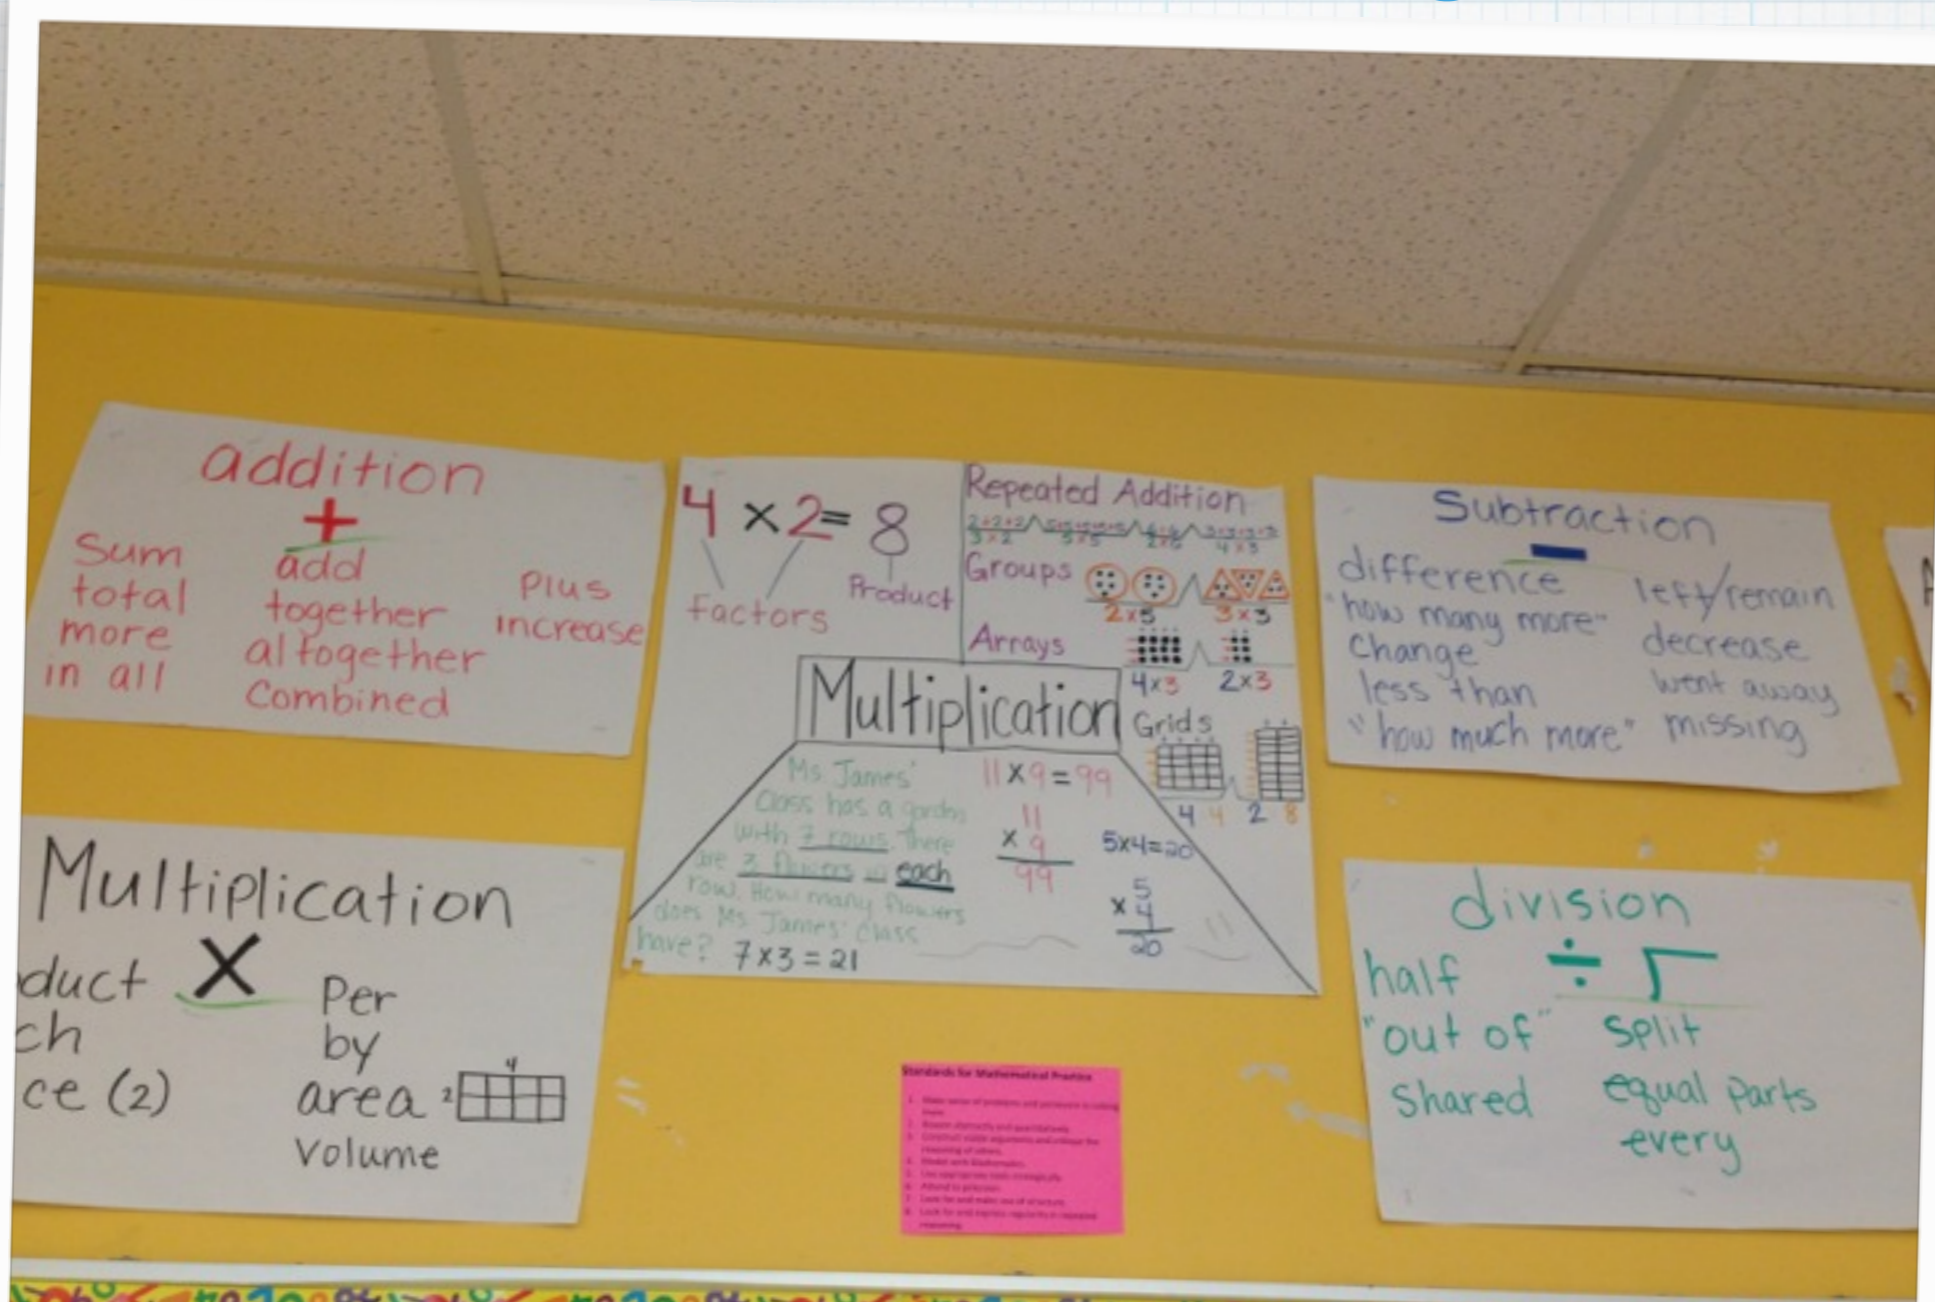 addition
+
Sum
total
more
in all
add
together
altogether
Combined
Plus
increase
4 x 2 = 8
Factors
Product
Repeated Addition
3x2
5x5
4x3
Groups
2x5
3x3
Arrays
4x3
2x3
Grids
4 4
2 8
Multiplication
Ms James'
Class has a garden
with 7 rows. There
are 3 flowers in each
row. How many flowers
does Ms James' class
have? 7x3=21
11x9=99
11
x 9
99
5x4=20
5
x 4
20
Subtraction
-
difference
"how many more"
Change
less than
"how much more"
left/remain
decrease
went away
missing
Multiplication
X
duct
ch
ce (2)
Per
by
area
4
2
Volume
division
÷
half
"out of"
Shared
Split
equal Parts
every
Standards for Mathematical Practice